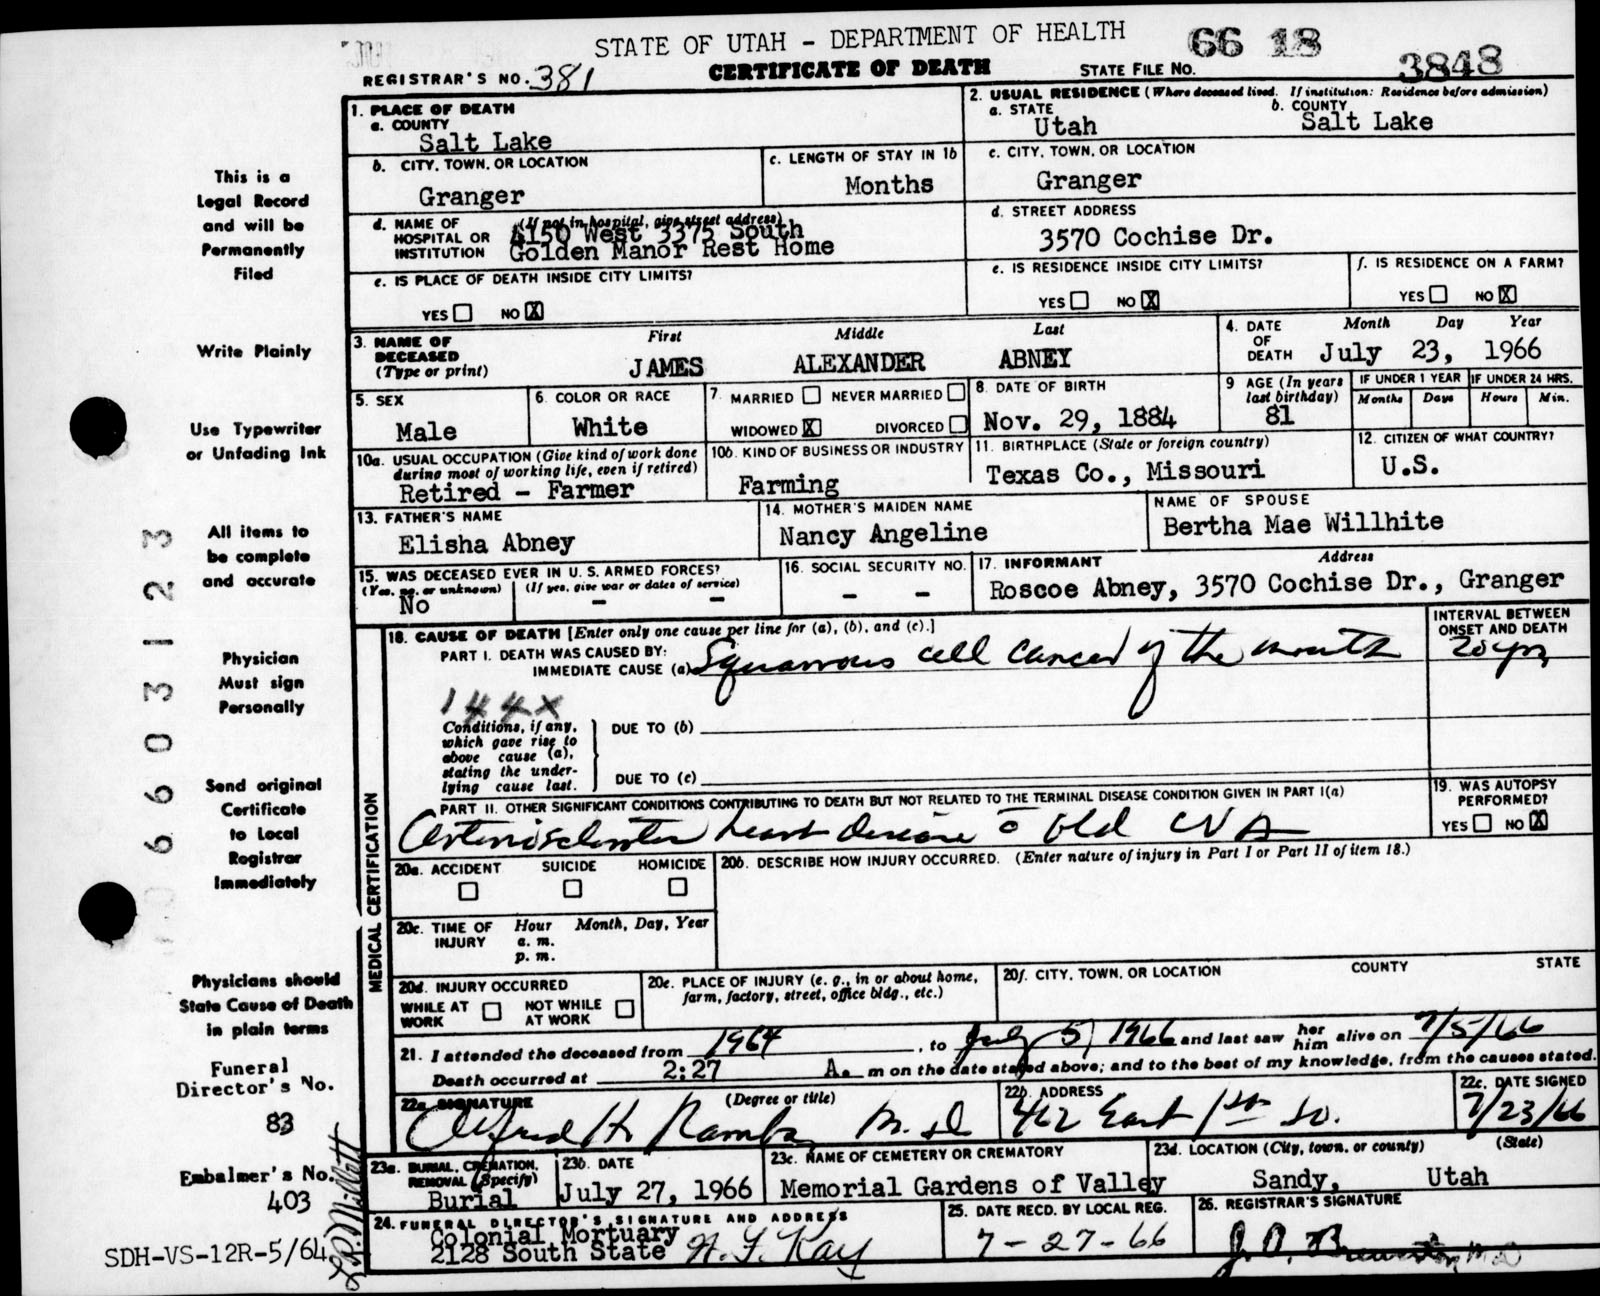 STATE OF UTAH - DEPARTMENT OF HEALTH
66 18 3848
REGISTRAR'S NO. 381
CERTIFICATE OF DEATH
STATE FILE NO.
1. PLACE OF DEATH
a. COUNTY
Salt Lake
2. USUAL RESIDENCE (Where deceased lived. If institution: Residence before admission)
a. STATE
Utah
b. COUNTY
Salt Lake
b. CITY, TOWN, OR LOCATION
Granger
c. LENGTH OF STAY IN 1b
Months
c. CITY, TOWN, OR LOCATION
Granger
d. NAME OF HOSPITAL OR INSTITUTION
(If not in hospital, give street address)
4150 West 3375 South
Golden Manor Rest Home
d. STREET ADDRESS
3570 Cochise Dr.
e. IS PLACE OF DEATH INSIDE CITY LIMITS?
YES NO X
e. IS RESIDENCE INSIDE CITY LIMITS?
YES NO X
f. IS RESIDENCE ON A FARM?
YES NO X
3. NAME OF DECEASED
(Type or print)
First Middle Last
JAMES ALEXANDER ABNEY
4. DATE OF DEATH
Month Day Year
July 23, 1966
5. SEX
Male
6. COLOR OR RACE
White
7. MARRIED NEVER MARRIED
WIDOWED X DIVORCED
8. DATE OF BIRTH
Nov. 29, 1884
9 AGE (In years last birthday)
81
IF UNDER 1 YEAR
Months Days
IF UNDER 24 HRS.
Hours Min.
10a. USUAL OCCUPATION (Give kind of work done during most of working life, even if retired)
Retired - Farmer
10b. KIND OF BUSINESS OR INDUSTRY
Farming
11. BIRTHPLACE (State or foreign country)
Texas Co., Missouri
12. CITIZEN OF WHAT COUNTRY?
U.S.
13. FATHER'S NAME
Elisha Abney
14. MOTHER'S MAIDEN NAME
Nancy Angeline
NAME OF SPOUSE
Bertha Mae Willhite
15. WAS DECEASED EVER IN U.S. ARMED FORCES?
(Yes, no, or unknown) (If yes, give war or dates of service)
No - -
16. SOCIAL SECURITY NO.
- -
17. INFORMANT Address
Roscoe Abney, 3570 Cochise Dr., Granger
MEDICAL CERTIFICATION
18. CAUSE OF DEATH [Enter only one cause per line for (a), (b), and (c).]
PART I. DEATH WAS CAUSED BY:
IMMEDIATE CAUSE (a) Squamous cell cancer of the mouth
INTERVAL BETWEEN ONSET AND DEATH
20 yrs
144x
Conditions, if any, which gave rise to above cause (a), stating the underlying cause last.
DUE TO (b)
DUE TO (c)
PART II. OTHER SIGNIFICANT CONDITIONS CONTRIBUTING TO DEATH BUT NOT RELATED TO THE TERMINAL DISEASE CONDITION GIVEN IN PART I(a)
Arteriosclerotic heart disease c̄ old CVA
19. WAS AUTOPSY PERFORMED?
YES NO X
20a. ACCIDENT SUICIDE HOMICIDE
20b. DESCRIBE HOW INJURY OCCURRED. (Enter nature of injury in Part I or Part II of item 18.)
20c. TIME OF INJURY
Hour Month, Day, Year
a. m.
p. m.
20d. INJURY OCCURRED
WHILE AT WORK NOT WHILE AT WORK
20e. PLACE OF INJURY (e. g., in or about home, farm, factory, street, office bldg., etc.)
20f. CITY, TOWN, OR LOCATION COUNTY STATE
21. I attended the deceased from 1964, to July 5, 1966 and last saw her him alive on 7/5/66
Death occurred at 2:27 A. m on the date stated above; and to the best of my knowledge, from the causes stated.
22a. SIGNATURE (Degree or title)
Alfred H. M.D
22b. ADDRESS
462 East 1st So.
22c. DATE SIGNED
7/23/66
23a. BURIAL, CREMATION, REMOVAL (Specify)
Burial
23b. DATE
July 27, 1966
23c. NAME OF CEMETERY OR CREMATORY
Memorial Gardens of Valley
23d. LOCATION (City, town, or county) (State)
Sandy, Utah
24. FUNERAL DIRECTOR'S SIGNATURE AND ADDRESS
Colonial Mortuary
2128 South State
25. DATE RECD. BY LOCAL REG.
7-27-66
26. REGISTRAR'S SIGNATURE
This is a
Legal Record
and will be
Permanently
Filed
Write Plainly
Use Typewriter
or Unfading Ink
All items to
be complete
and accurate
Physician
Must sign
Personally
Send original
Certificate
to Local
Registrar
Immediately
Physicians should
State Cause of Death
in plain terms
Funeral
Director's No.
83
Embalmer's No.
403
SDH-VS-12R-5/64
06603123